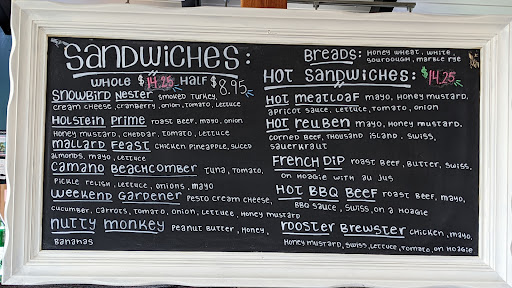 Sandwiches:
Whole $14.25 Half $8.95
Snowbird Nester smoked turkey,
cream cheese, cranberry, onion, tomato, lettuce
Holstein Prime roast beef, mayo, onion
honey mustard, cheddar, tomato, lettuce
Mallard Feast chicken pineapple, sliced
almonds, mayo, lettuce
Camano Beachcomber tuna, tomato,
pickle relish, lettuce, onions, mayo
Weekend Gardener pesto cream cheese,
cucumber, carrots, tomato, onion, lettuce, honey mustard
Nutty Monkey peanut butter, honey,
bananas
Breads: honey wheat, white,
sourdough, marble rye
Hot Sandwiches: $14.25
Hot Meatloaf mayo, honey mustard,
apricot sauce, lettuce, tomato, onion
Hot Reuben mayo, honey mustard,
corned beef, thousand island, swiss,
sauerkraut
French Dip roast beef, butter, swiss,
on hoagie with au jus
Hot BBQ Beef roast beef, mayo,
BBQ sauce, swiss, on a hoagie
Rooster Brewster chicken, mayo,
honey mustard, swiss, lettuce, tomato, on hoagie